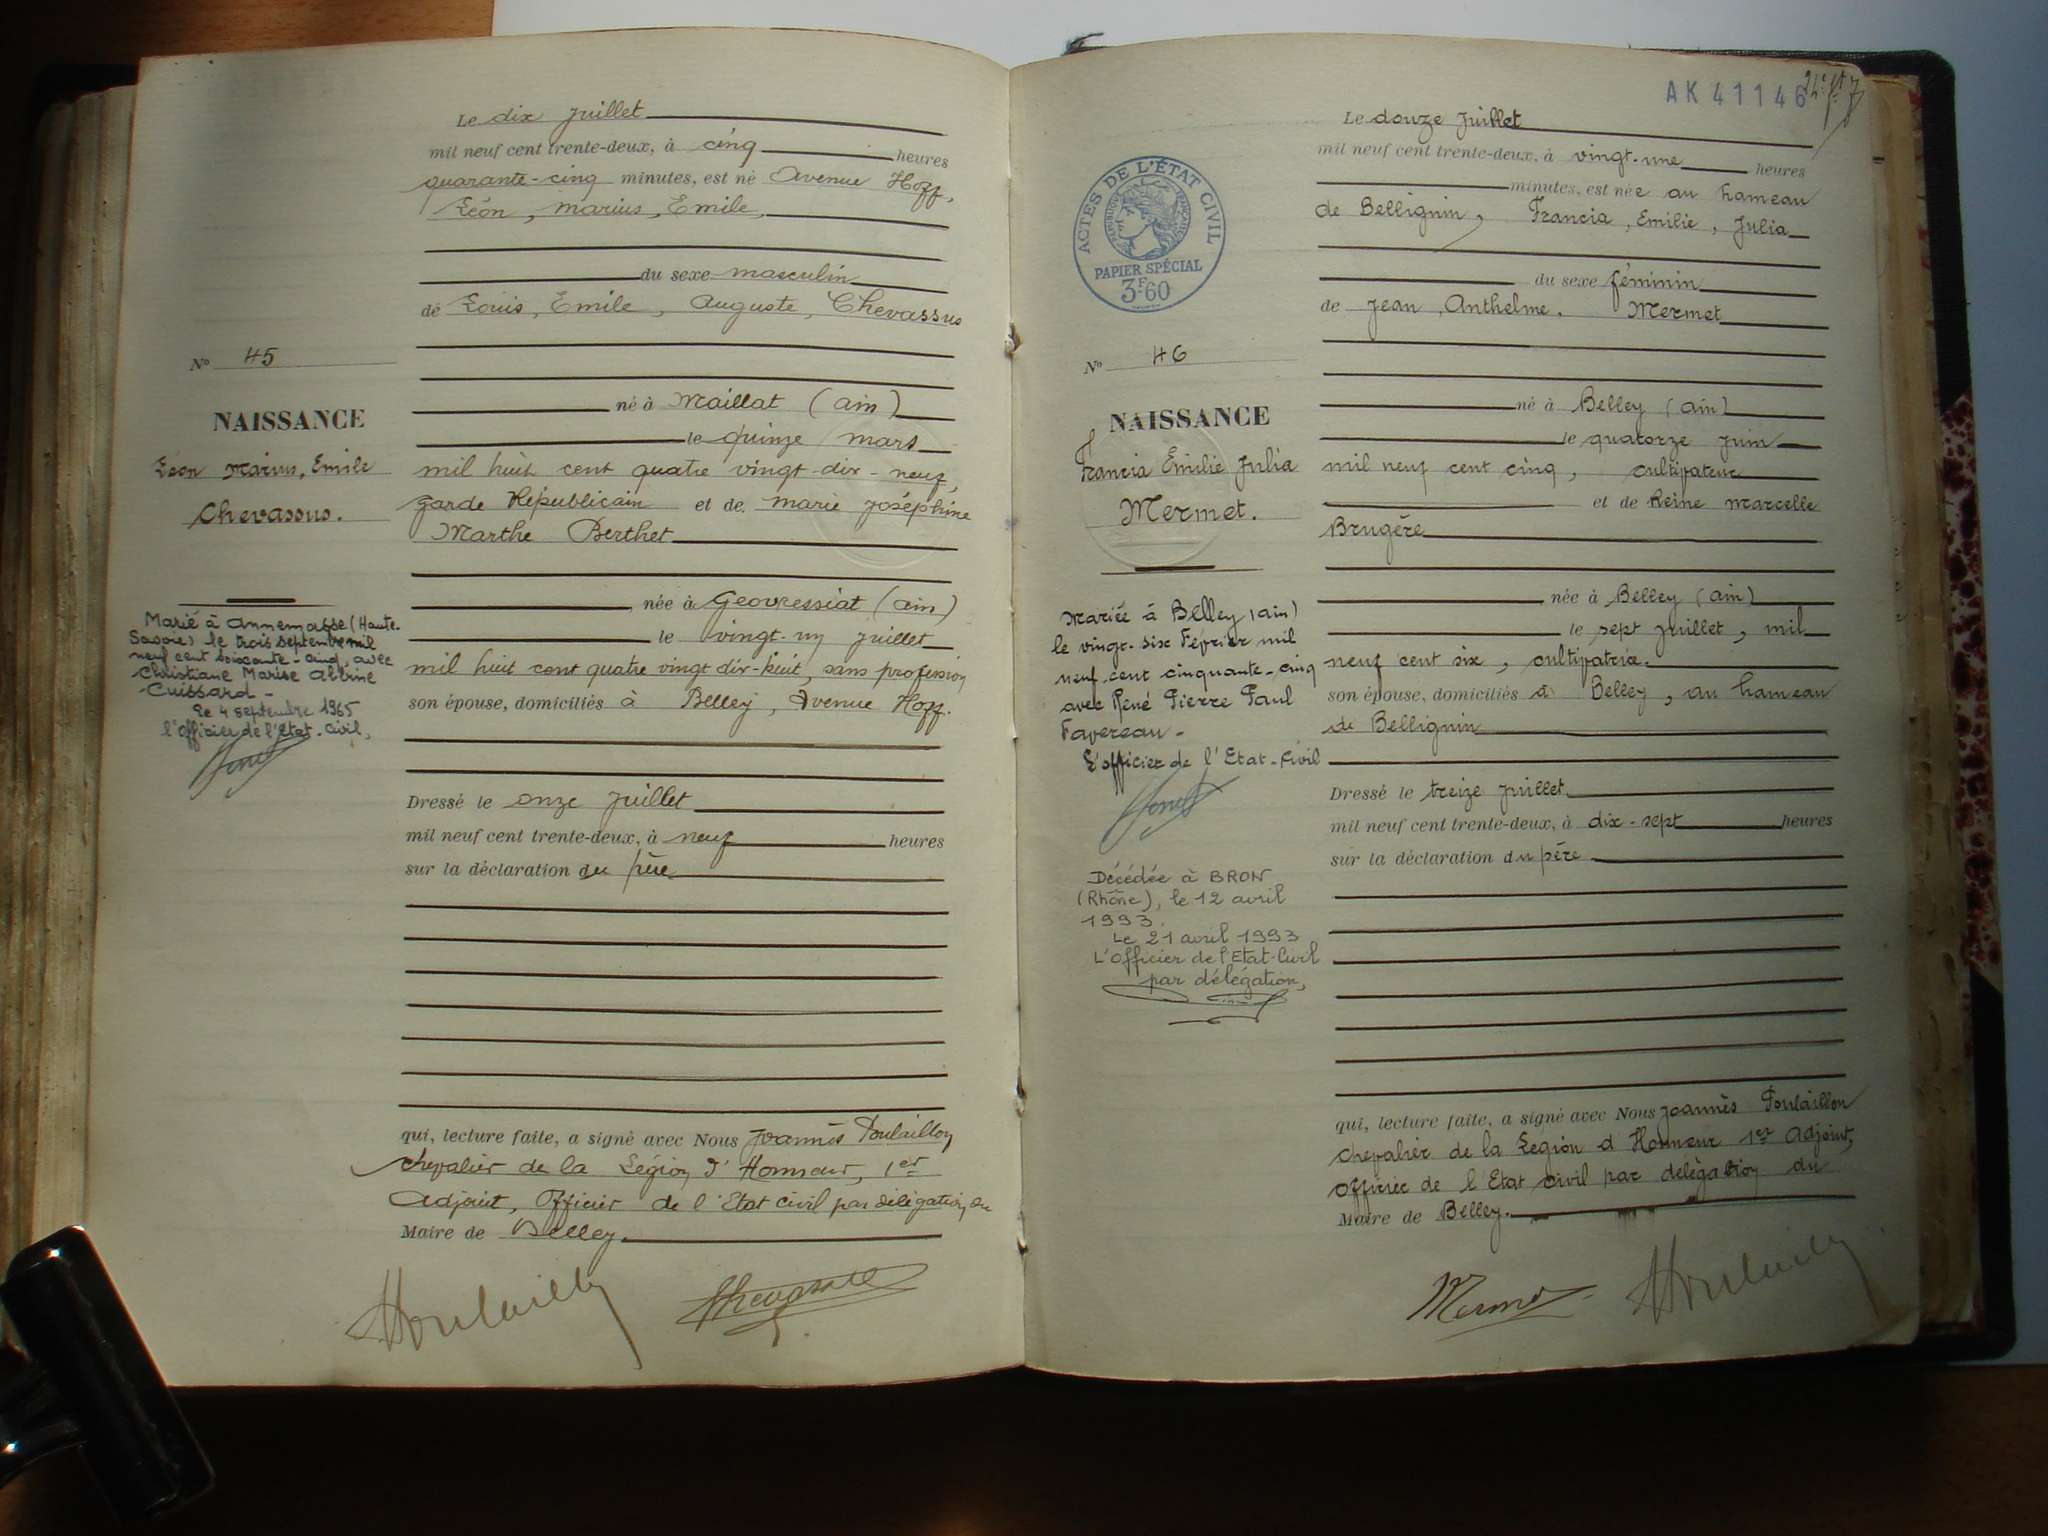 Le dix juillet
mil neuf cent trente-deux, à cinq heures
quarante-cinq minutes, est né Avenue Hoff,
Léon, Marius, Emile,
du sexe masculin
de Louis, Emile, Auguste, Chevassus
né à Maillat (ain)
le quinze mars
mil huit cent quatre vingt-dix-neuf,
garde Républicain et de marie joséphine
Marthe Berthet
née à Géovressiat (ain)
le vingt-un juillet
mil huit cent quatre vingt dix-huit, sans profession
son épouse, domiciliés à Belley, Avenue Hoff.
Dressé le onze juillet
mil neuf cent trente-deux, à neuf heures
sur la déclaration du père
qui, lecture faite, a signé avec Nous Joannès Poulaillon
chevalier de la Légion d'Honneur, 1er
adjoint, Officier de l'Etat civil par délégation du
Maire de Belley.
No 45
NAISSANCE
Léon Marius, Emile
Chevassus.
Marié à Annemasse (Haute-
Savoie) le trois septembre mil
neuf cent soixante-cinq, avec
Christiane Marise
Cuissard -
Le 4 septembre 1965
l'Officier de l'Etat-Civil,
AK 41146
Le douze juillet
mil neuf cent trente-deux, à vingt-une heures
minutes, est née au hameau
de Bellignin, Francia, Emilie, Julia
du sexe féminin
de Jean, Anthelme, Mermet
né à Belley (ain)
le quatorze juin
mil neuf cent cinq, cultivateur
et de Reine Marcelle
Brugère
née à Belley (ain)
le sept juillet, mil
neuf cent six, cultivatrice.
son épouse, domiciliés à Belley, au hameau
de Bellignin
Dressé le treize juillet
mil neuf cent trente-deux, à dix-sept heures
sur la déclaration du père
qui, lecture faite, a signé avec Nous Joannès Poulaillon
chevalier de la Légion d'Honneur 1er adjoint,
officier de l'Etat civil par délégation du
Maire de Belley.
Mermet
ACTES DE L'ÉTAT CIVIL
RÉPUBLIQUE FRANÇAISE
PAPIER SPÉCIAL
3F60
No 46
NAISSANCE
Francia Emilie Julia
Mermet.
Mariée à Belley (ain)
le vingt-six Février mil
neuf cent cinquante-cinq
avec René Pierre Paul
Favereau -
L'officier de l'Etat-Civil
Décédée à BRON
(Rhône), le 12 avril
1993.
Le 21 avril 1993
L'Officier de l'Etat-Civil
par délégation,